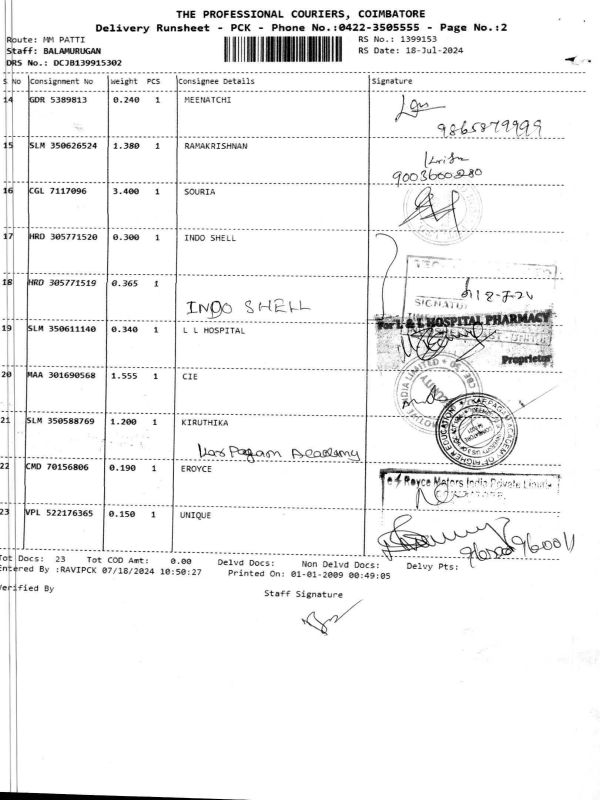 THE PROFESSIONAL COURIERS, COIMBATORE
Delivery Runsheet - PCK - Phone No.:0422-3505555 - Page No.:2
Route: MM PATTI
RS No.: 1399153
Staff: BALAMURUGAN
RS Date: 18-Jul-2024
DRS No.: DCJB139915302
S No Consignment No Weight PCS Consignee Details Signature
14 GDR 5389813 0.240 1 MEENATCHI
9865879999
15 SLM 350626524 1.380 1 RAMAKRISHNAN
9003600280
16 CGL 7117096 3.400 1 SOURIA
17 HRD 305771520 0.300 1 INDO SHELL
18 HRD 305771519 0.365 1
INDO SHELL
SIGNATU
For L & L HOSPITAL PHARMACY
19 SLM 350611140 0.340 1 L L HOSPITAL
Proprietor
20 MAA 301690568 1.555 1 CIE
INDIA LIMITED
21 SLM 350588769 1.200 1 KIRUTHIKA
Karpagam Academy
KARPAGAM ACADEMY OF HIGHER EDUCATION
22 CMD 70156806 0.190 1 EROYCE
Royce Motors India Private Limited
23 VPL 522176365 0.150 1 UNIQUE
Tot Docs: 23 Tot COD Amt: 0.00 Delvd Docs: Non Delvd Docs: Delvy Pts:
Entered By :RAVIPCK 07/18/2024 10:50:27 Printed On: 01-01-2009 00:49:05
Verified By
Staff Signature